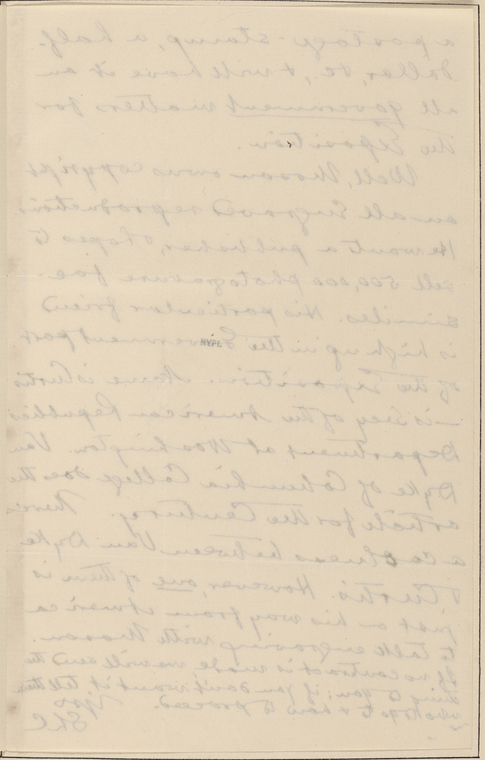 a postage-stamp, a half-
dollar, &c., & will have it on
all government matters for
the Exposition.
Well, Mason owns copyright
on all Engraved reproductions.
He wants a publisher, & hopes to
sell 500,000 photogravure fac-
similes. His particular friend
is high up in the Government part
of the Exposition. Name is Curtis
—is Secy of the American Republics
Department at Washington. Van
Dyke of Columbia College
article for the Century. There's
a coolness between Van Dyke
& Curtis. However, one of them is
just on his way from America
to talk engraving with Mason.
If no contract is made we will send the
thing to you; if you don't want it tell them
who to go to & how to proceed.
Yrs
SLC
NYPL